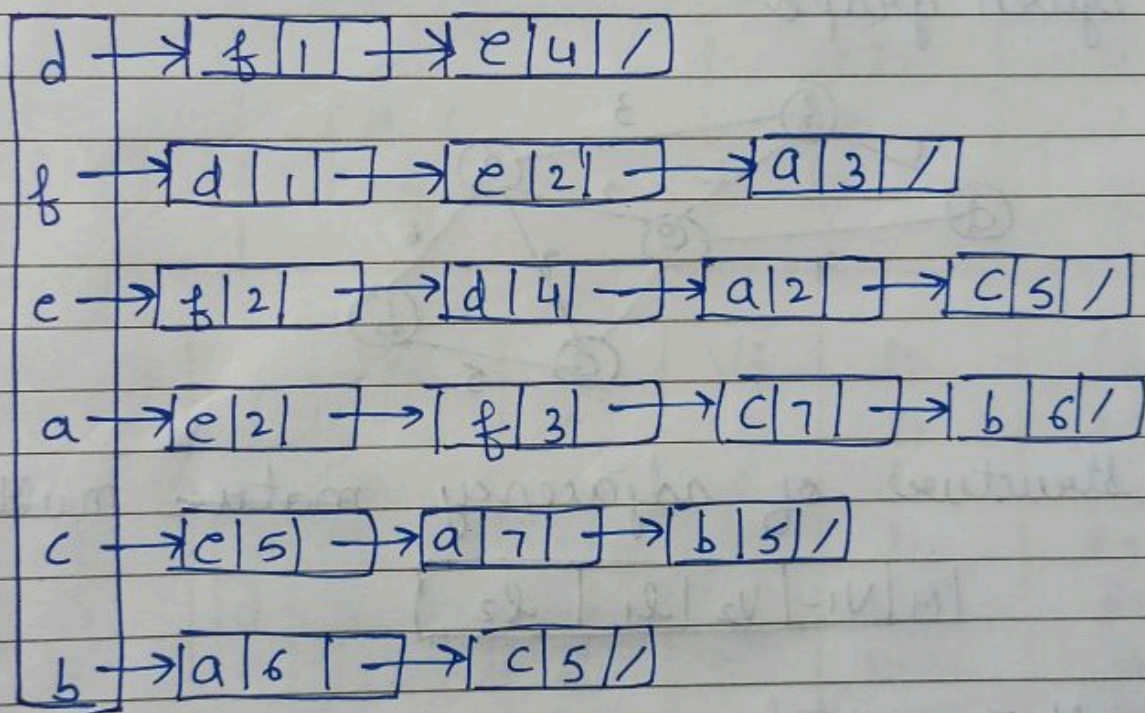 d → f | 1 | → e | 4 | /
f → d | 1 | → e | 2 | → a | 3 | /
e → f | 2 | → d | 4 | → a | 2 | → c | 5 | /
a → e | 2 | → f | 3 | → c | 7 | → b | 6 | /
c → e | 5 | → a | 7 | → b | 5 | /
b → a | 6 | → c | 5 | /